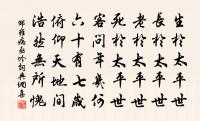 生於太平世
長於太平世
老於太平世
死於太平世
客問年幾何
六十有七歲
俯仰天地間
浩然無所愧
邵雍病亟吟